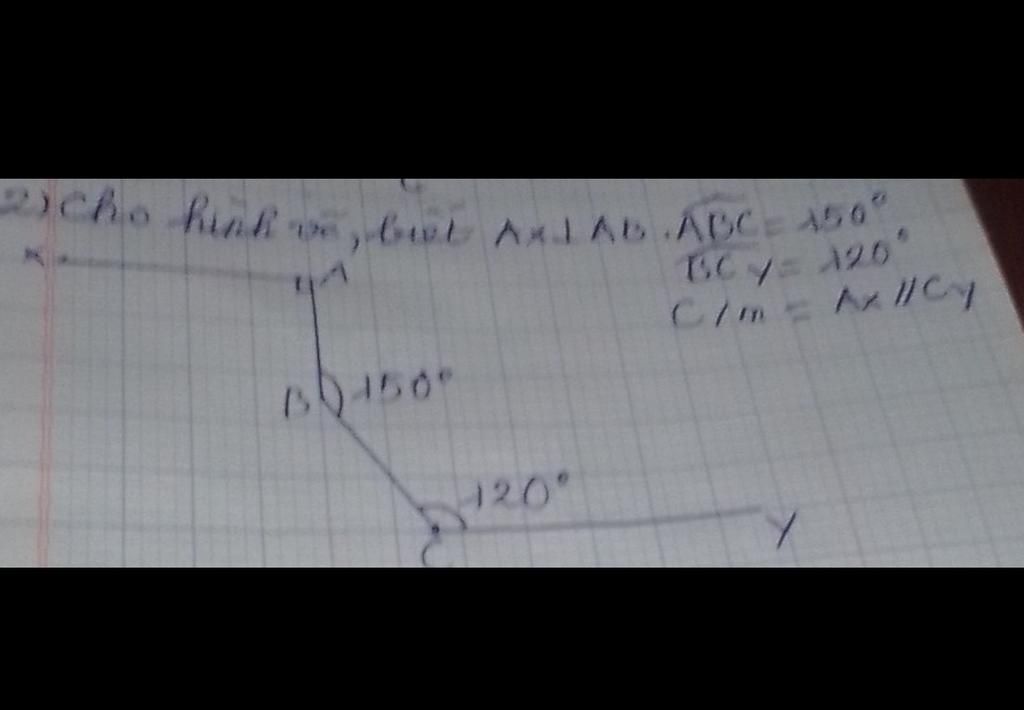 2) Cho hình vẽ, biết Ax ⊥ AB. ABC = 150°
BCy = 120°
C/m = Ax // Cy
x A
B 150°
120°
C y